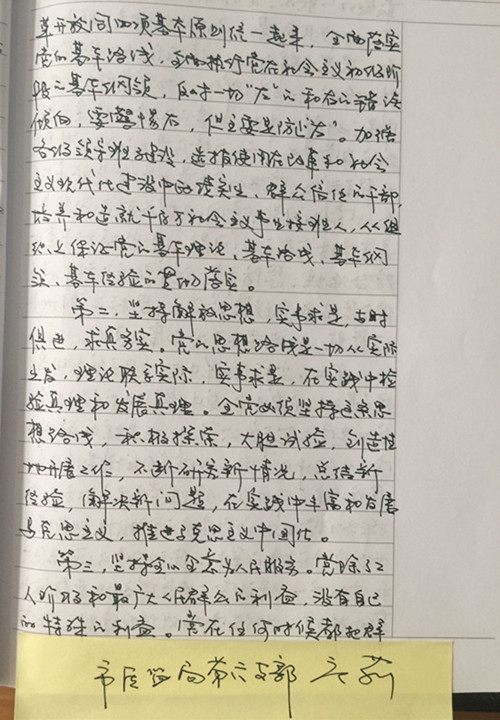 革开放同四项基本原则统一起来，全面落实
党的基本路线，全面执行党在社会主义初级阶
段的基本纲领，反对一切“左”的和右的错误
倾向，要警惕右，但主要是防止“左”。加强
各级领导班子建设，选拔使用在改革和社会
主义现代化建设中政绩突出、群众信任的干部，
培养和造就千百万社会主义事业接班人，从组
织上保证党的基本理论、基本路线、基本纲
领、基本经验的贯彻落实。
第二，坚持解放思想，实事求是，与时
俱进，求真务实。党的思想路线是一切从实际
出发，理论联系实际，实事求是，在实践中检
验真理和发展真理。全党必须坚持这条思
想路线，积极探索，大胆试验，创造性
地开展工作，不断研究新情况，总结新
经验，解决新问题，在实践中丰富和发展
马克思主义，推进马克思主义中国化。
第三，坚持全心全意为人民服务。党除了工
人阶级和最广大人民群众的利益，没有自己
的特殊的利益。党在任何时候都把群
市医监局第六支部